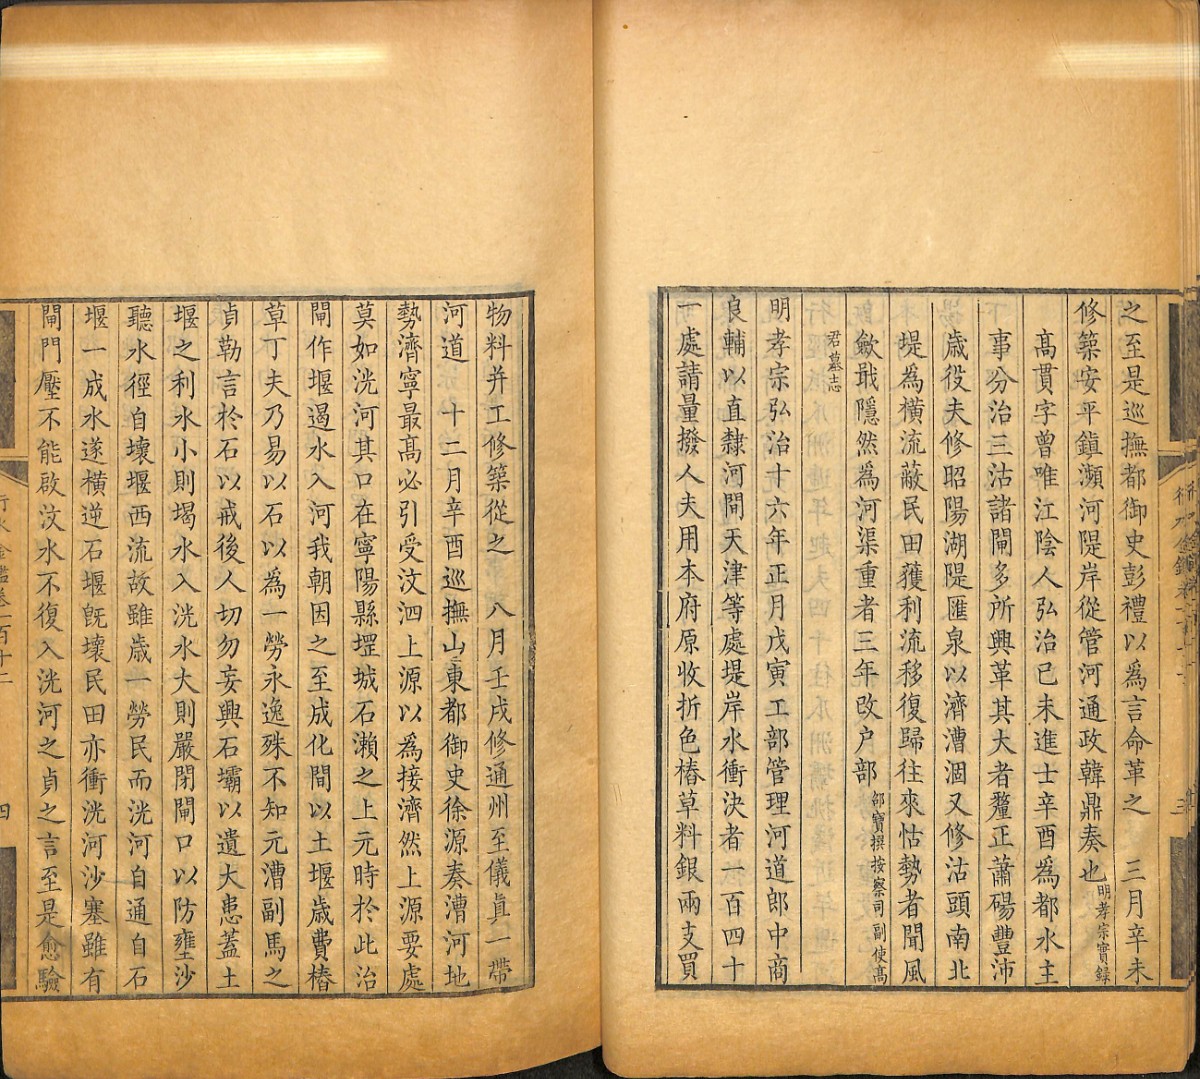 之至是巡撫都御史彭禮以為言命革之　三月辛未
修築安平鎮瀕河隄岸從管河通政韓鼎奏也明孝宗實錄
高貫字曾唯江陰人弘治已未進士辛酉為都水主
事分治三沽諸閘多所興革其大者釐正蕭碭豐沛
歲役夫修昭陽湖隄匯泉以濟漕涸又修沽頭南北
堤為橫流蔽民田獲利流移復歸往來怙勢者聞風
歛戢隱然為河渠重者三年改户部邵寶撰按察司副使高
君墓志
明孝宗弘治十六年正月戊寅工部管理河道郎中商
良輔以直隸河間天津等處堤岸水衝決者一百四十
一處請量撥人夫用本府原收折色樁草料銀兩支買
物料并工修築從之　八月壬戌修通州至儀真一帶
河道　十二月辛酉巡撫山東都御史徐源奏漕河地
勢濟寧最高必引受汶泗上源以為接濟然上源要處
莫如洸河其口在寧陽縣堽城石瀨之上元時於此治
閘作堰遏水入河我朝因之至成化間以土堰歲費樁
草丁夫乃易以石以為一勞永逸殊不知元漕副馬之
貞勒言於石以戒後人切勿妄興石壩以遺大患蓋土
堰之利水小則堨水入洸水大則嚴閉閘口以防壅沙
聽水徑自壞堰西流故雖歲一勞民而洸河自通自石
堰一成水遂橫逆石堰旣壞民田亦衝洸河沙塞雖有
閘門壓不能啟汶水不復入洸河之貞之言至是愈驗
行水金鑑卷一百十二
四